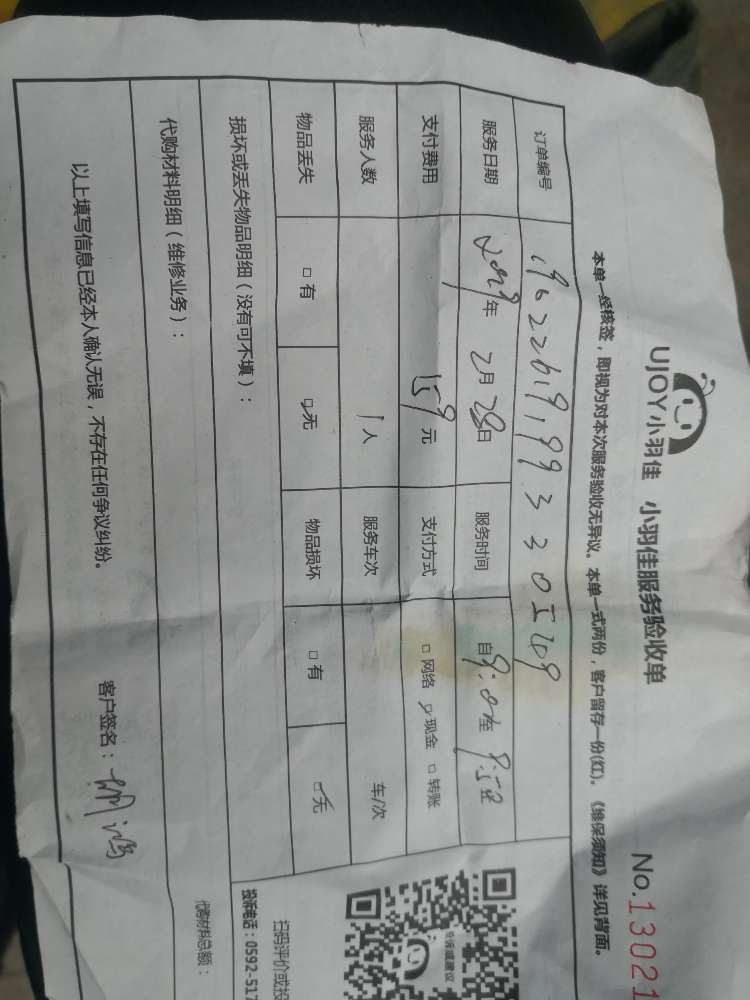 UJOY小羽佳 小羽佳服务验收单 No.13021
本单一经核签，即视为对本次服务验收无异议。本单一式两份，客户留存一份(红)。《维保须知》详见背面。
订单编号
服务日期 2019年 2月 28日 服务时间 自9:00至 9:50
支付费用 159元 支付方式 □ 网络 ☑ 现金 □ 转账
服务人数 1人 服务车次 车/次
物品丢失 □ 有 ☑ 无 物品损坏 □ 有 ☑ 无
损坏或丢失物品明细（没有可不填）：
代购材料明细（维修业务）： 代购材料总额：
以上填写信息已经本人确认无误，不存在任何争议纠纷。 客户签名：
扫码评价或投
投诉电话：0592-517